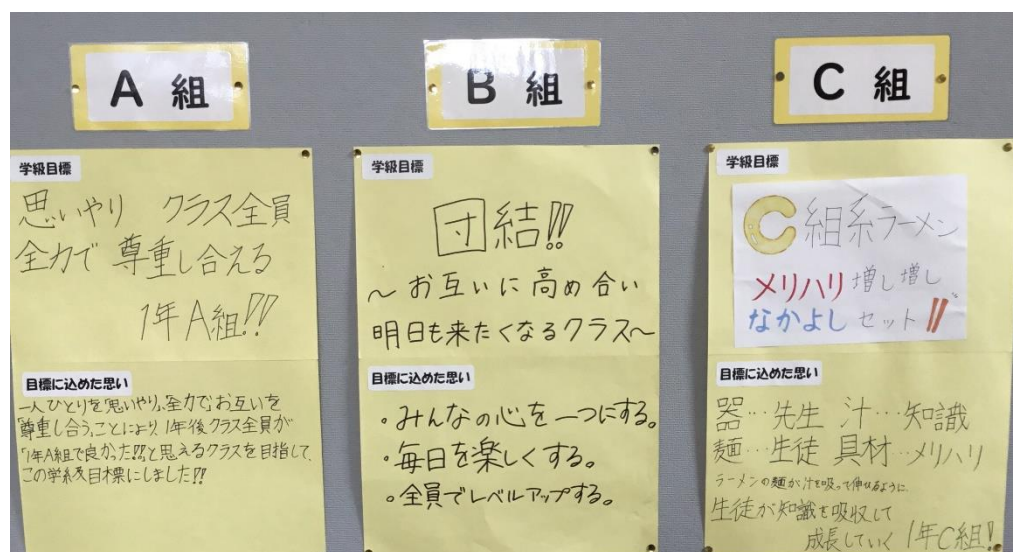 A 組
学級目標
思いやり クラス全員
全力で 尊重し合える
1年A組!!
目標に込めた思い
一人ひとりを「思いやり」、全力で、お互いを
「尊重し合う」ことにより、1年後クラス全員が
「1年A組で良かった!!」と思えるクラスを目指して、
この学級目標にしました!!
B 組
学級目標
団結!!
～お互いに高め合い
明日も来たくなるクラス～
目標に込めた思い
・みんなの心を一つにする。
・毎日を楽しくする。
・全員でレベルアップする。
C 組
学級目標
C組系ラーメン
メリハリ増し増し
なかよしセット!!
目標に込めた思い
器…先生 汁…知識
麺…生徒 具材…メリハリ
ラーメンの麺が汁を吸って伸びるように、
生徒が知識を吸収して
成長していく 1年C組!